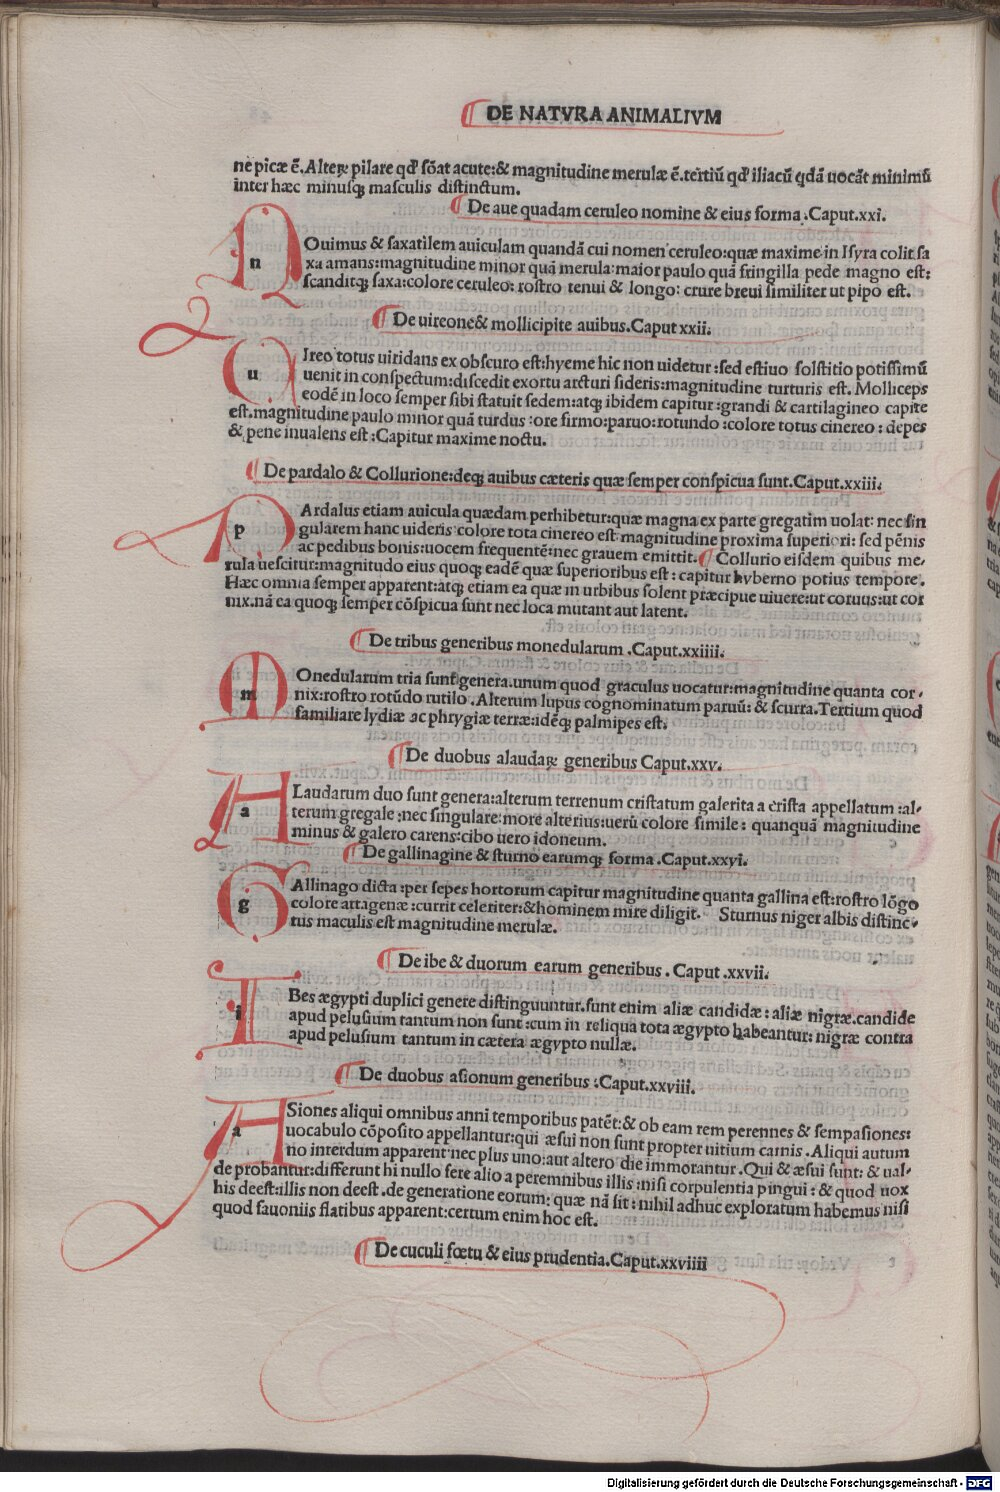 DE NATVRA ANIMALIVM
ne picæ ē. Alteꝝ pilare qđ sōat acute: & magnitudine merulæ ē. tertiū qđ iliacū qdā uocāt minimū
inter hæc minusq; masculis distinctum.
De aue quadam ceruleo nomine & eius forma. Caput. xxi.
n Ouimus & saxatilem auiculam quandā cui nomen ceruleo: quæ maxime in Isyra colit sa
xa amans: magnitudine minor quā merula: maior paulo quā fringilla pede magno est:
scanditq; saxa: colore ceruleo: rostro tenui & longo: crure breui similiter ut pipo est.
De uireone & mollicipite auibus. Caput xxii.
u Ireo totus uiridans ex obscuro est: hyeme hic non uidetur: sed estiuo solstitio potissimū
uenit in conspectum: discedit exortu arcturi sideris: magnitudine turturis est. Molliceps
eodē in loco semper sibi statuit sedem: atq; ibidem capitur: grandi & cartilagineo capite
est. magnitudine paulo minor quā turdus: ore firmo: paruo: rotundo: colore totus cinereo: depes
& pene inualens est: Capitur maxime noctu.
De pardalo & Collurione: deq; auibus cæteris quæ semper conspicua sunt. Caput. xxiii.
p Ardalus etiam auicula quædam perhibetur: quæ magna ex parte gregatim uolat: nec sin
gularem hanc uideris colore tota cinereo est magnitudine proxima superiori: sed pēnis
ac pedibus bonis: uocem frequentē: nec grauem emittit. Collurio eisdem quibus me,
rula uescitur: magnitudo eius quoq; eadē quæ superioribus est: capitur hyberno potius tempore.
Hæc omnia semper apparent: atq; etiam ea quæ in urbibus solent præcipue uiuere: ut coruus: ut cor
nix. nā ea quoq; semper cōspicua sunt nec loca mutant aut latent.
De tribus generibus monedularum. Caput. xxiiii.
m Onedularum tria sunt genera. unum quod graculus uocatur: magnitudine quanta cor,
nix: rostro rotūdo rutilo. Alterum lupus cognominatum paruū: & scurra. Tertium quod
familiare lydiæ ac phrygiæ terræ: idēq; palmipes est.
De duobus alaudaꝝ generibus Caput. xxv.
a Laudarum duo sunt genera: alterum terrenum cristatum galerita a crista appellatum: al,
terum gregale: nec singulare: more alterius: uerū colore simile: quanquā magnitudine
minus & galero carens: cibo uero idoneum.
De gallinagine & sturno earumq; forma. Caput. xxyi.
g Allinago dicta: per sepes hortorum capitur magnitudine quanta gallina est: rostro lōgo
colore attagenæ: currit celeriter: & hominem mire diligit. Sturnus niger albis distinc,
tus maculis est magnitudine merulæ.
De ibe & duorum earum generibus. Caput. xxvii.
i Bes ægypti duplici genere distinguuntur. sunt enim aliæ candidæ: aliæ nigræ. candide
apud pelusium tantum non sunt: cum in reliqua tota ægypto habeantur: nigræ contra
apud pelusium tantum in cætera ægypto nullæ.
De duobus asionum generibus. Caput. xxviii.
a Siones aliqui omnibus anni temporibus patēt: & ob eam rem perennes & sempasiones:
uocabulo cōposito appellantur: qui æsui non sunt propter uitium carnis. Aliqui autum
no interdum apparent nec plus uno: aut altero die immorantur. Qui & æsui sunt: & ual,
de probantur: differunt hi nullo fere alio a peremnibus illis: nisi corpulentia pingui: & quod uox
his deest: illis non deest. de generatione eorum: quæ nā sit: nihil adhuc exploratum habemus nisi
quod fauoniis flatibus apparent: certum enim hoc est.
De cuculi fœtu & eius prudentia. Caput. xxviiii
Digitalisierung gefördert durch die Deutsche Forschungsgemeinschaft - DFG